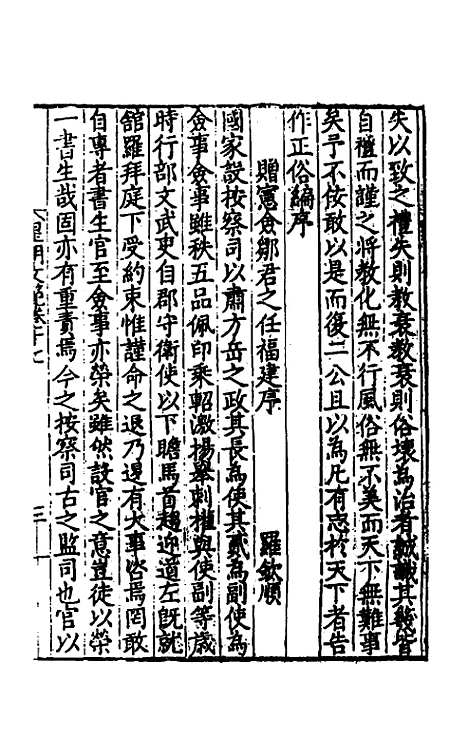 失以致之禮失則教衰教衰則俗壞為治者誠識其幾皆
自禮而謹之將教化無不行風俗無不美而天下無難事
矣予不佞敢以是而復二公且以為凡有志於天下者告
作正俗編序
贈憲僉鄒君之任福建序 羅欽順
國家設按察司以肅方岳之政其長為使其貳為副使為
僉事僉事雖秩五品佩印乘軺激揚舉刺權與使副等歲
時行部文武吏自郡守衛使以下瞻馬首趨迎道左既就
舘羅拜庭下受約束惟謹命之退乃退有大事咨焉罔敢
自專者書生官至僉事亦榮矣雖然設官之意豈徒以榮
一書生哉固亦有重責焉今之按察司古之監司也官以
皇明文 卷十七
三